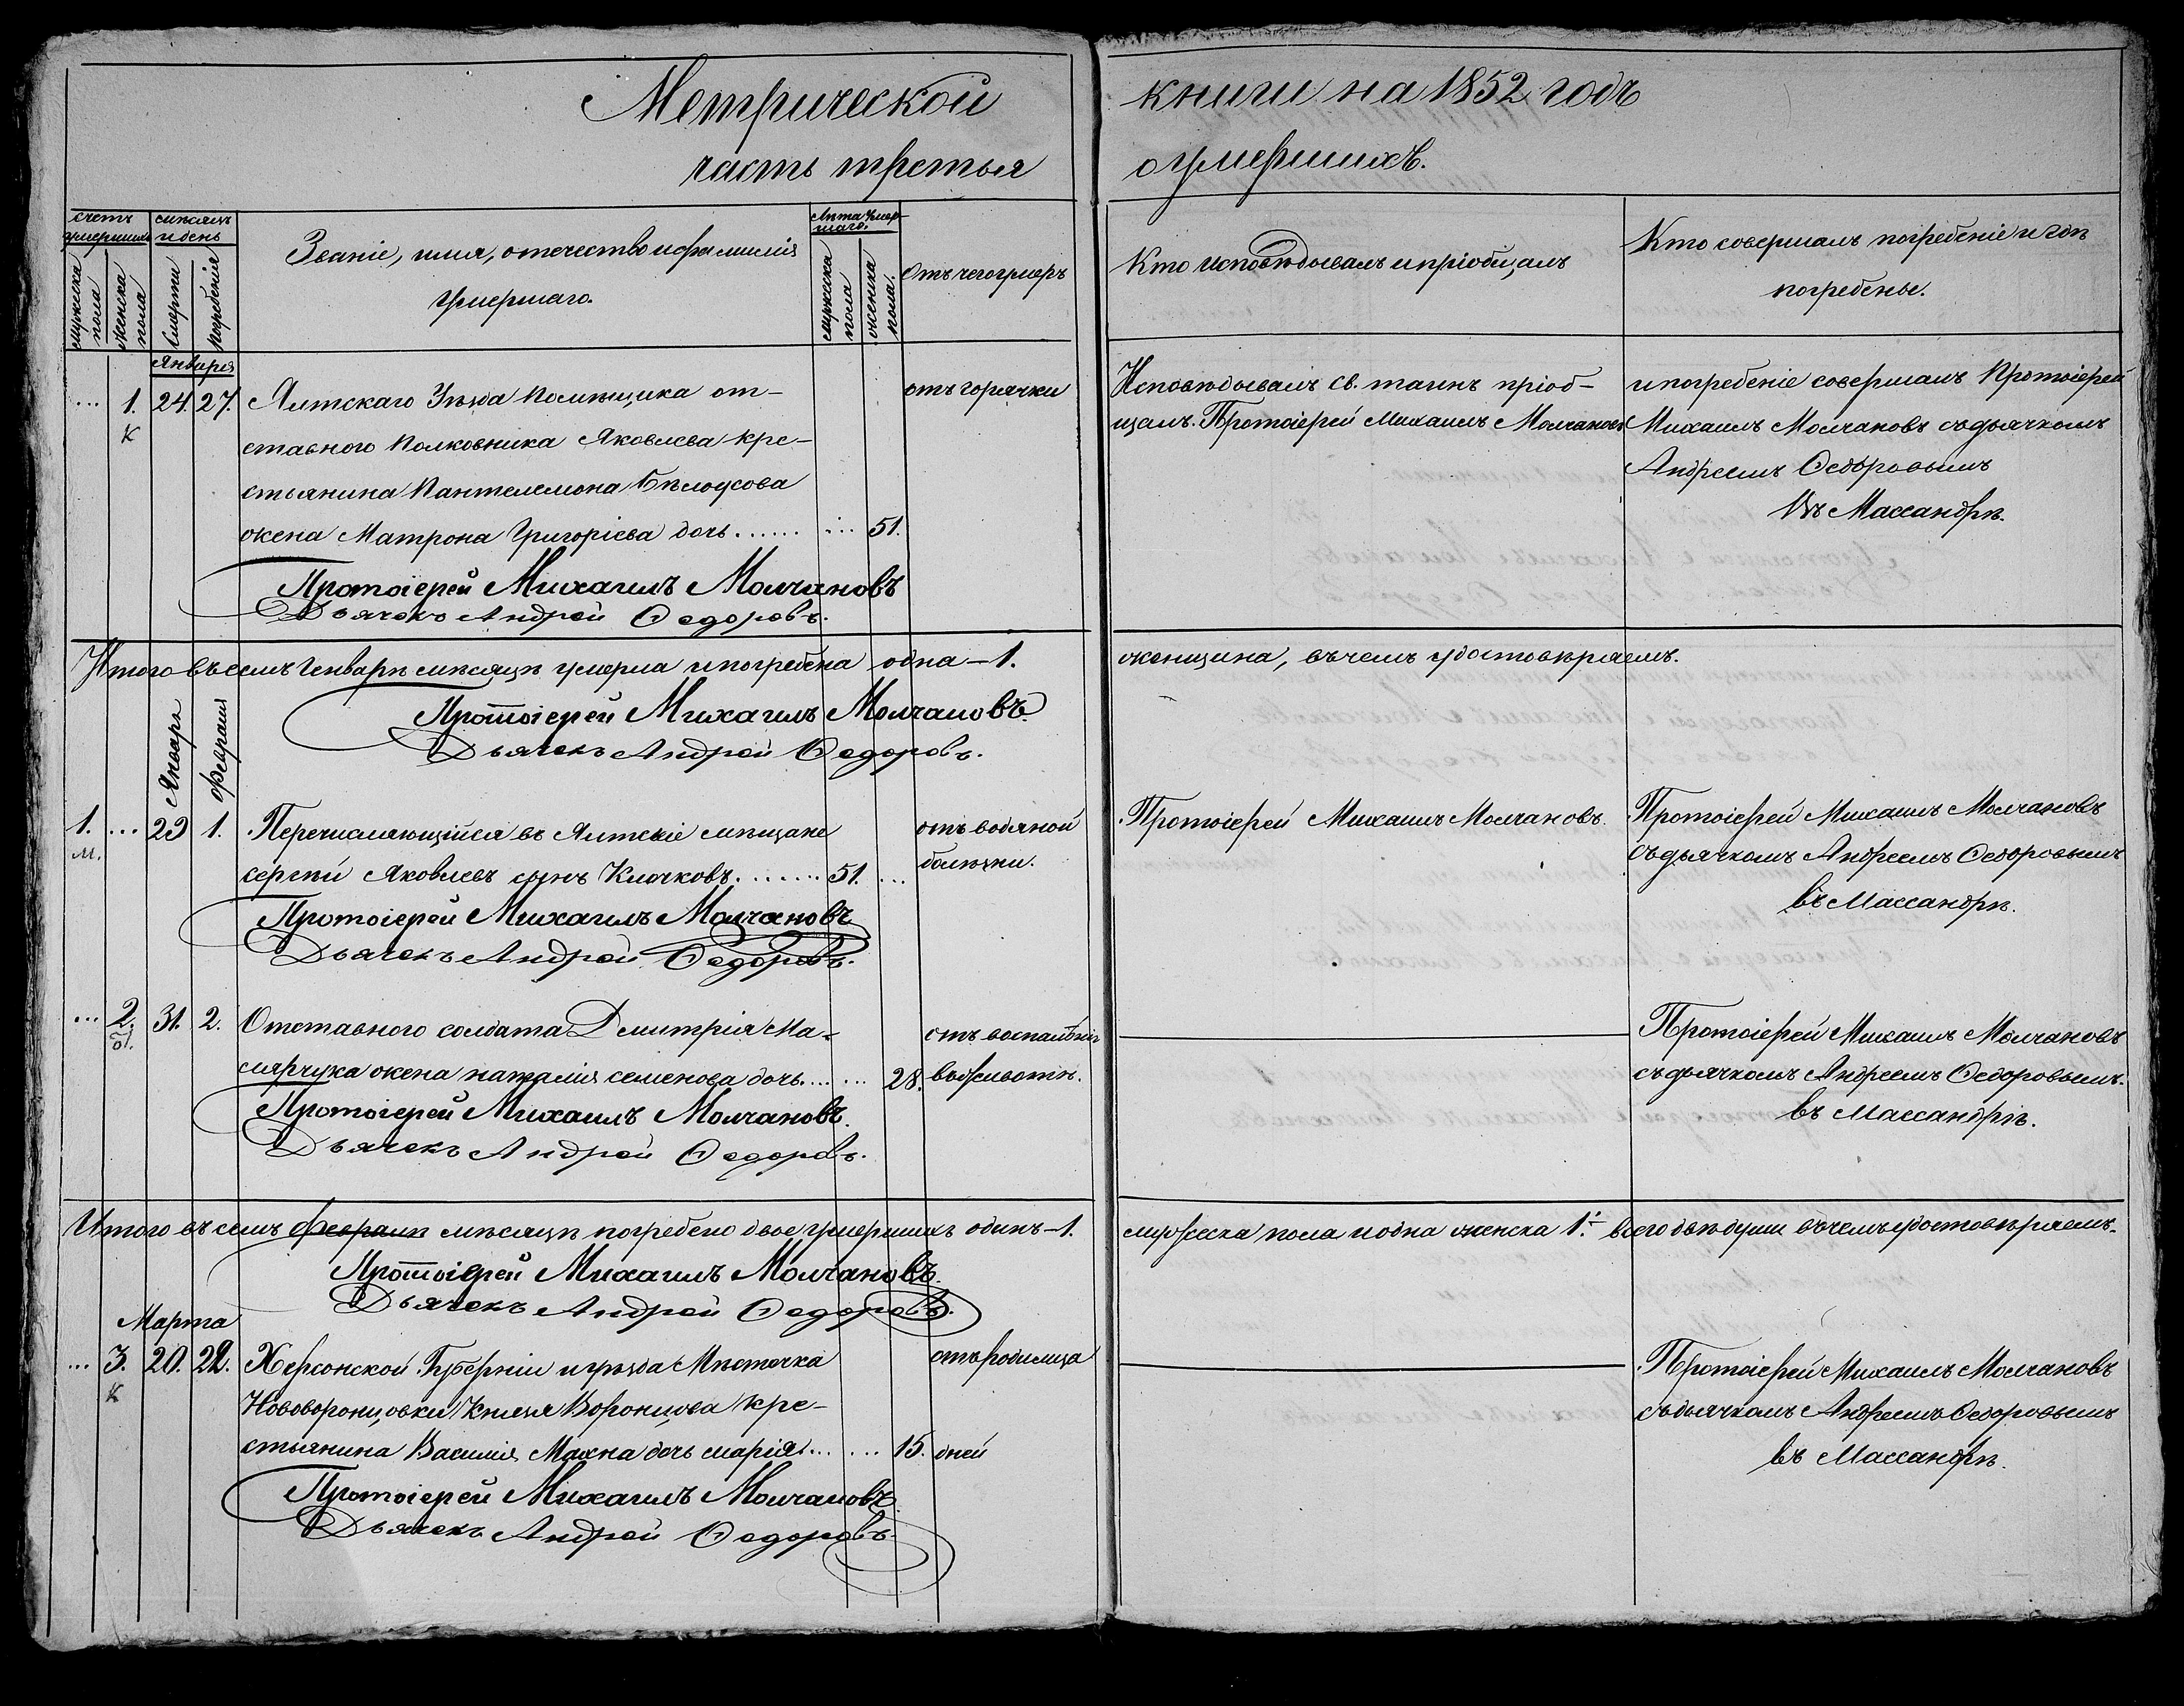 Метрической книги на 1852 годъ
часть третья о умершихъ.
счетъ умершихъ
мужеска пола
женска пола
мѣсяцъ и день
смерти
погребенія
Званіе, имя, отечество и фамилія
умершаго.
Лѣта умер-
шаго.
мужеска пола
женска пола.
Отъ чего умеръ
Кто исповѣдывалъ и пріобщалъ
Кто совершалъ погребеніе и гдѣ
погребены.
Января
... 1. 24. 27. Ялтскаго Уѣзда Помѣщика от- отъ горячки Исповѣдывалъ св. таинъ пріоб- и погребеніе совершалъ Протоіерей
к ставного Полковника Яковлева кре- щалъ. Протоіерей Михаилъ Молчановъ Михаилъ Молчановъ съ дьячкомъ
стьянина Пантелемона Бѣлоусова Андреемъ Ѳедоровымъ
жена Матрона Григоріева дочь...... ... 51. Въ Массандрѣ.
Протоіерей Михаилъ Молчановъ
Дьячекъ Андрей Ѳедоровъ.
Итого въ семъ Генварѣ мѣсяцѣ умерла и погребена одна – 1. женщина, въ чемъ удостовѣряемъ.
Протоіерей Михаилъ Молчановъ.
Дьячекъ Андрей Ѳедоровъ.
Январь
Февраля
1. ... 29 1. Перечисляющійся въ Ялтскіе мѣщане отъ водяной Протоіерей Михаилъ Молчановъ. Протоіерей Михаилъ Молчановъ
м. сергѣй Яковлевъ сынъ Клочковъ....... 51. ... болѣзни. съ дьячкомъ Андреемъ Ѳедоровымъ
въ Массандрѣ.
Протоіерей Михаилъ Молчановъ
Дьячекъ Андрей Ѳедоровъ.
... 2. 31. 2. Отставного солдата Дмитрія Ма- отъ воспаленія Протоіерей Михаилъ Молчановъ
слярчука жена наталія семенова дочь.... ... 28. въ животѣ. съ дьячкомъ Андреемъ Ѳедоровымъ.
въ Массандрѣ.
Протоіерей Михаилъ Молчановъ.
Дьячекъ Андрей Ѳедоровъ.
Итого въ семъ февралѣ мѣсяцѣ погребено двое умершихъ одинъ – 1. мужеска пола и одна женска 1. всего двѣ души въ чемъ удостовѣряемъ.
Протоіерей Михаилъ Молчановъ.
Дьячекъ Андрей Ѳедоровъ.
Марта
... 3. 20. 22. Херсонской Губерніи и уѣзда Мѣстечка отъ родимца Протоіерей Михаилъ Молчановъ
к Нововоронцовки Князя Воронцова кре- съ дьячкомъ Андреемъ Ѳедоровымъ
стьянина Василія Махна дочь марія.... ... 15. дней въ Массандрѣ.
Протоіерей Михаилъ Молчановъ.
Дьячекъ Андрей Ѳедоровъ.